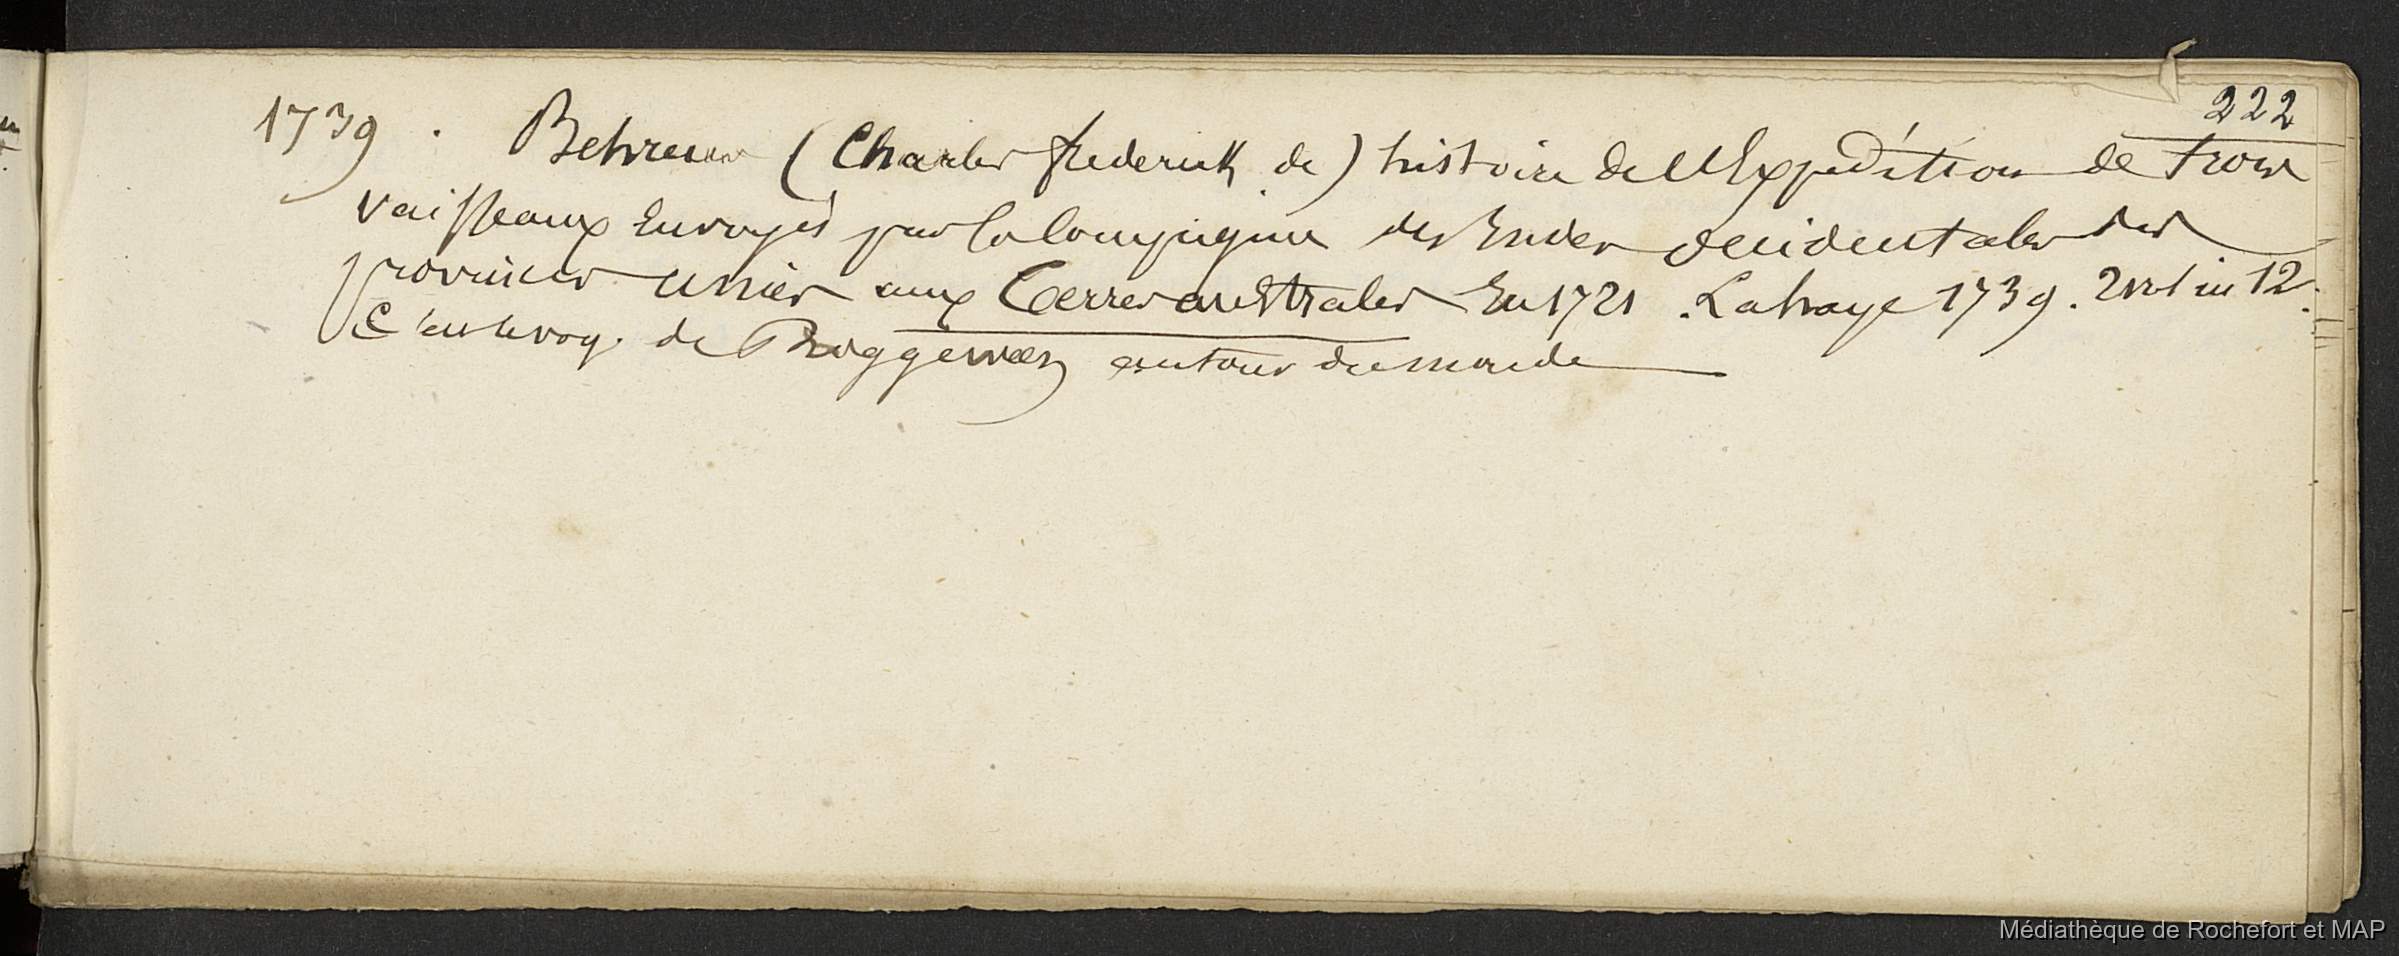 222
1739 . Behrens (Charles frederick de) histoire de l'Expédition de trois
vaisseaux Envoyés par la Compagnie des Indes occidentales des
provinces unies aux Terres australes En 1721 . Lahaye 1739. 2 vol in 12.
C'est le voy. de Roggeween autour du monde
Médiathèque de Rochefort et MAP